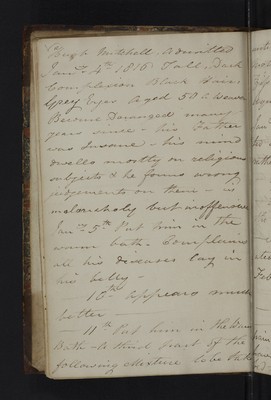 Hugh Mitchell Admitted
Janry 4th 1816 Tall Dark
Complexion Black Hair
Grey Eyes Aged 50 A Weaver
Became Deranged many
years since - his Father
was Insane - his mind
dwells mostly on religious
subjects & he forms wrong
judgements on them - is
melancholy but inoffensive
Janry 5th Put him in the
warm bath - Complains
all his diseases lay in
his belly -
10th Appears much
better -
11th Put him in the Warm
Bath - a third part of the
following Mixture to be taken